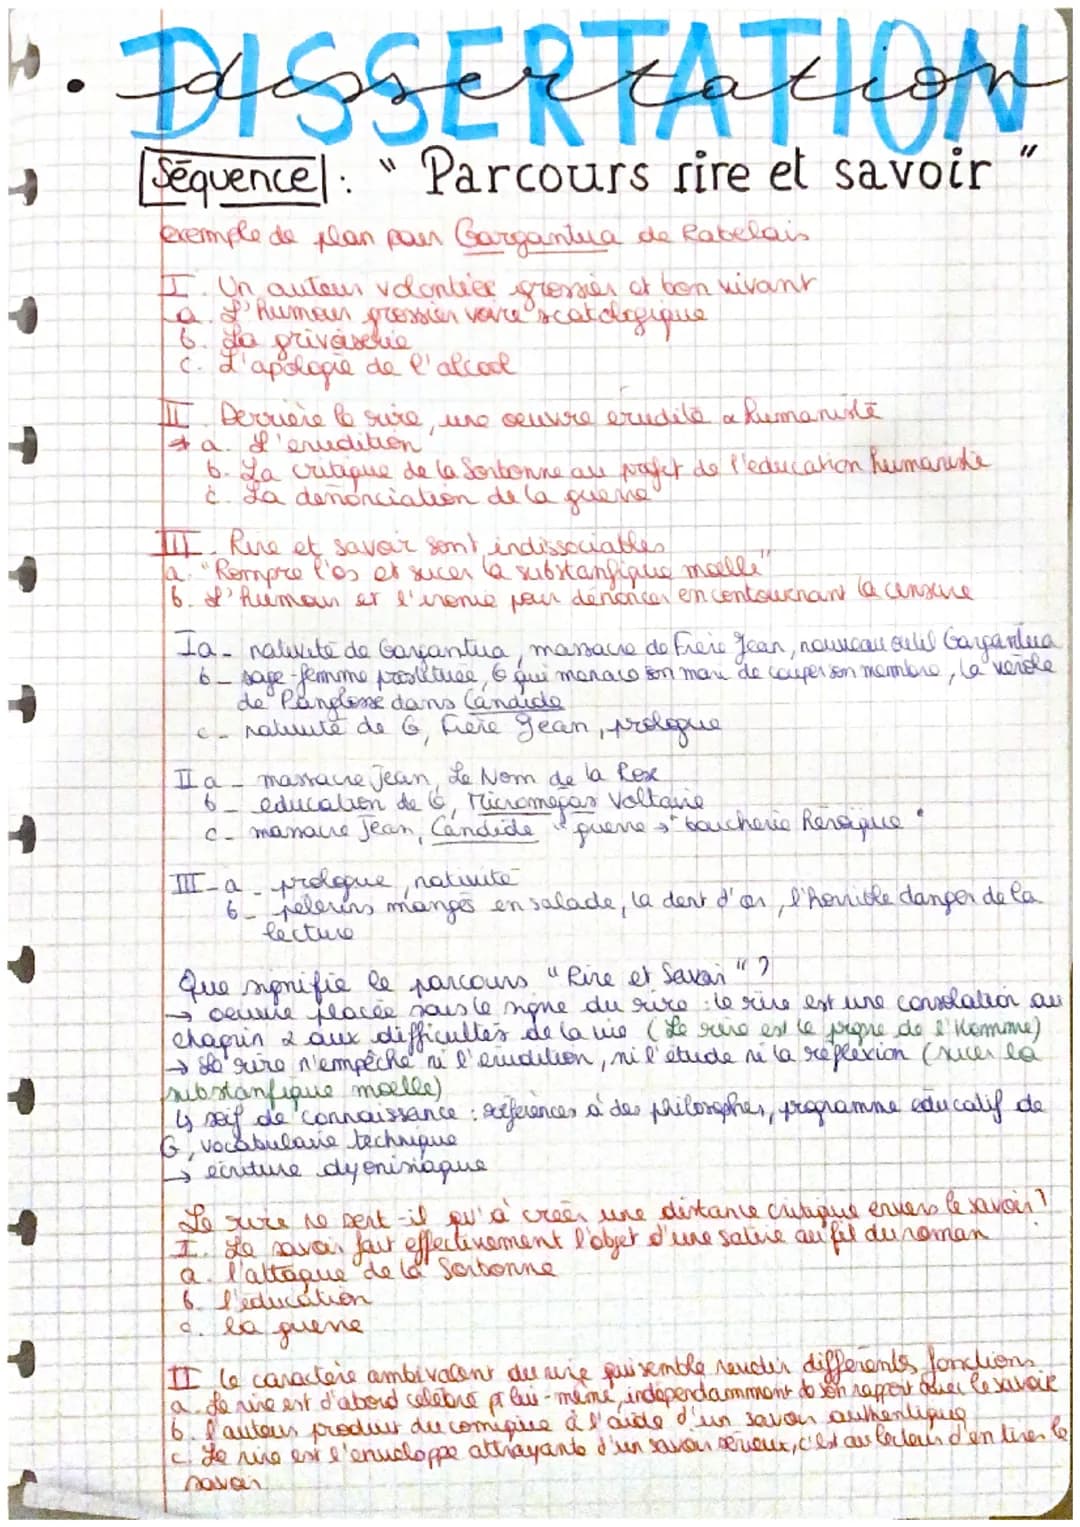 DISSERTATION
• dissertation
Séquence : " Parcours rire et savoir "
exemple de plan pour Gargantua de Rabelais
I. Un auteur volontier grossier et bon vivant
a. L'humour grossier voire scatologique
b. La grivoiserie
c. L'apologie de l'alcool
II. Derrière le rire, une oeuvre érudite & humaniste
a. L'érudition
b. La critique de la Sorbonne au profit de l'education humaniste
c. La dénonciation de la guerre
III. Rire et savoir sont indissociables
a. "Rompre l'os et sucer la substantifique moelle"
b. L'humour et l'ironie pour dénoncer en contournant la censure
Ia - nativité de Gargantua, massacre de Frère Jean, nouveau outil Gargantua
b - sage-femme prostituée, G qui menace son mari de couper son membre, la vérole
de Pangloss dans Candide
c - nativité de G, Frère Jean, prologue
II a - massacre Jean, Le Nom de la Rose
b - education de G, Micromégas Voltaire
c - massacre Jean, Candide " guerre → " boucherie héroïque "
III - a - prologue, nativité
b - pélerins mangés en salade, la dent d'or, l'horrible danger de la
lecture
Que signifie le parcours "Rire et Savoir" ?
→ oeuvre placée sous le signe du rire : le rire est une consolation au
chagrin & aux difficultés de la vie (Le rire est le propre de l'Homme)
→ Le rire n'empêche ni l'érudition, ni l'étude ni la réflexion (sucer la
substantifique moelle)
↳ soif de connaissance : références à des philosophes, programme éducatif de
G, vocabulaire technique
→ écriture dyonisiaque
Le rire ne sert-il qu'à créer une distance critique envers le savoir ?
I. Le savoir fait effectivement l'objet d'une satire au fil du roman
a. l'attaque de la Sorbonne
b. l'éducation
c. la guerre
II Le caractère ambivalent du rire qui semble revêtir différentes fonctions
a. Le rire est d'abord célébré pr lui-même, indépendamment de son rapport avec le savoir
b. l'auteur produit du comique à l'aide d'un savoir authentique
c. Le rire est l'enveloppe attrayante d'un savoir sérieux, c'est au lecteur d'en tirer le
savoir